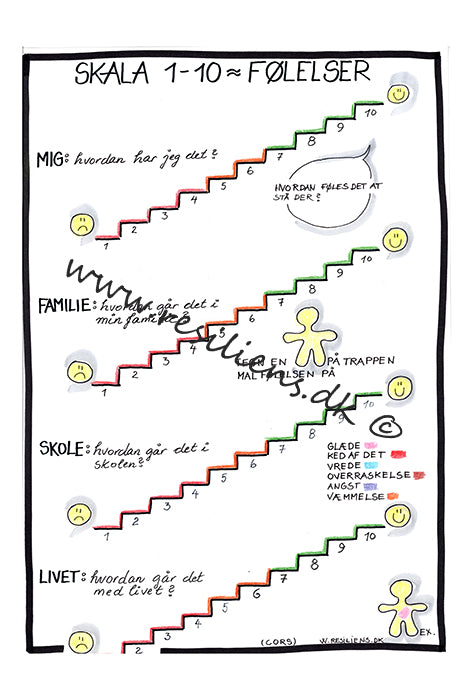 SKALA 1-10 ≈ FØLELSER
MIG: hvordan har jeg det?
1 2 3 4 5 6 7 8 9 10
HVORDAN FØLES DET AT
STÅ DER?
FAMILIE: hvordan går det i
min familie?
1 2 3 4 5 6 7 8 9 10
TEGN EN PÅ TRAPPEN
MAL FØLELSEN PÅ
www.resiliens.dk ©
SKOLE: hvordan går det i
skolen?
1 2 3 4 5 6 7 8 9 10
GLÆDE
KED AF DET
VREDE
OVERRASKELSE
ANGST
VÆMMELSE
LIVET: hvordan går det
med livet?
2 3 4 5 6 7 8 9 10
EX.
(CORS) W.RESILIENS.DK